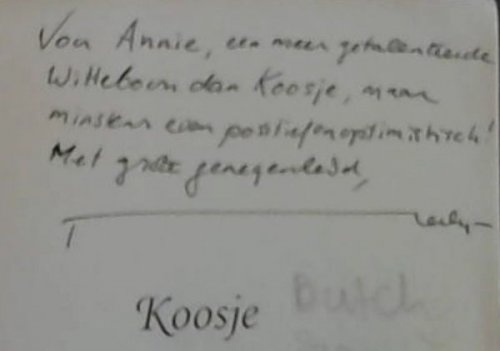 Voor Annie, een meer getalenteerde
Witteboon dan Koosje, maar
minstens even positief en optimistisch!
Met grote genegenheid,
Koosje
Dutch